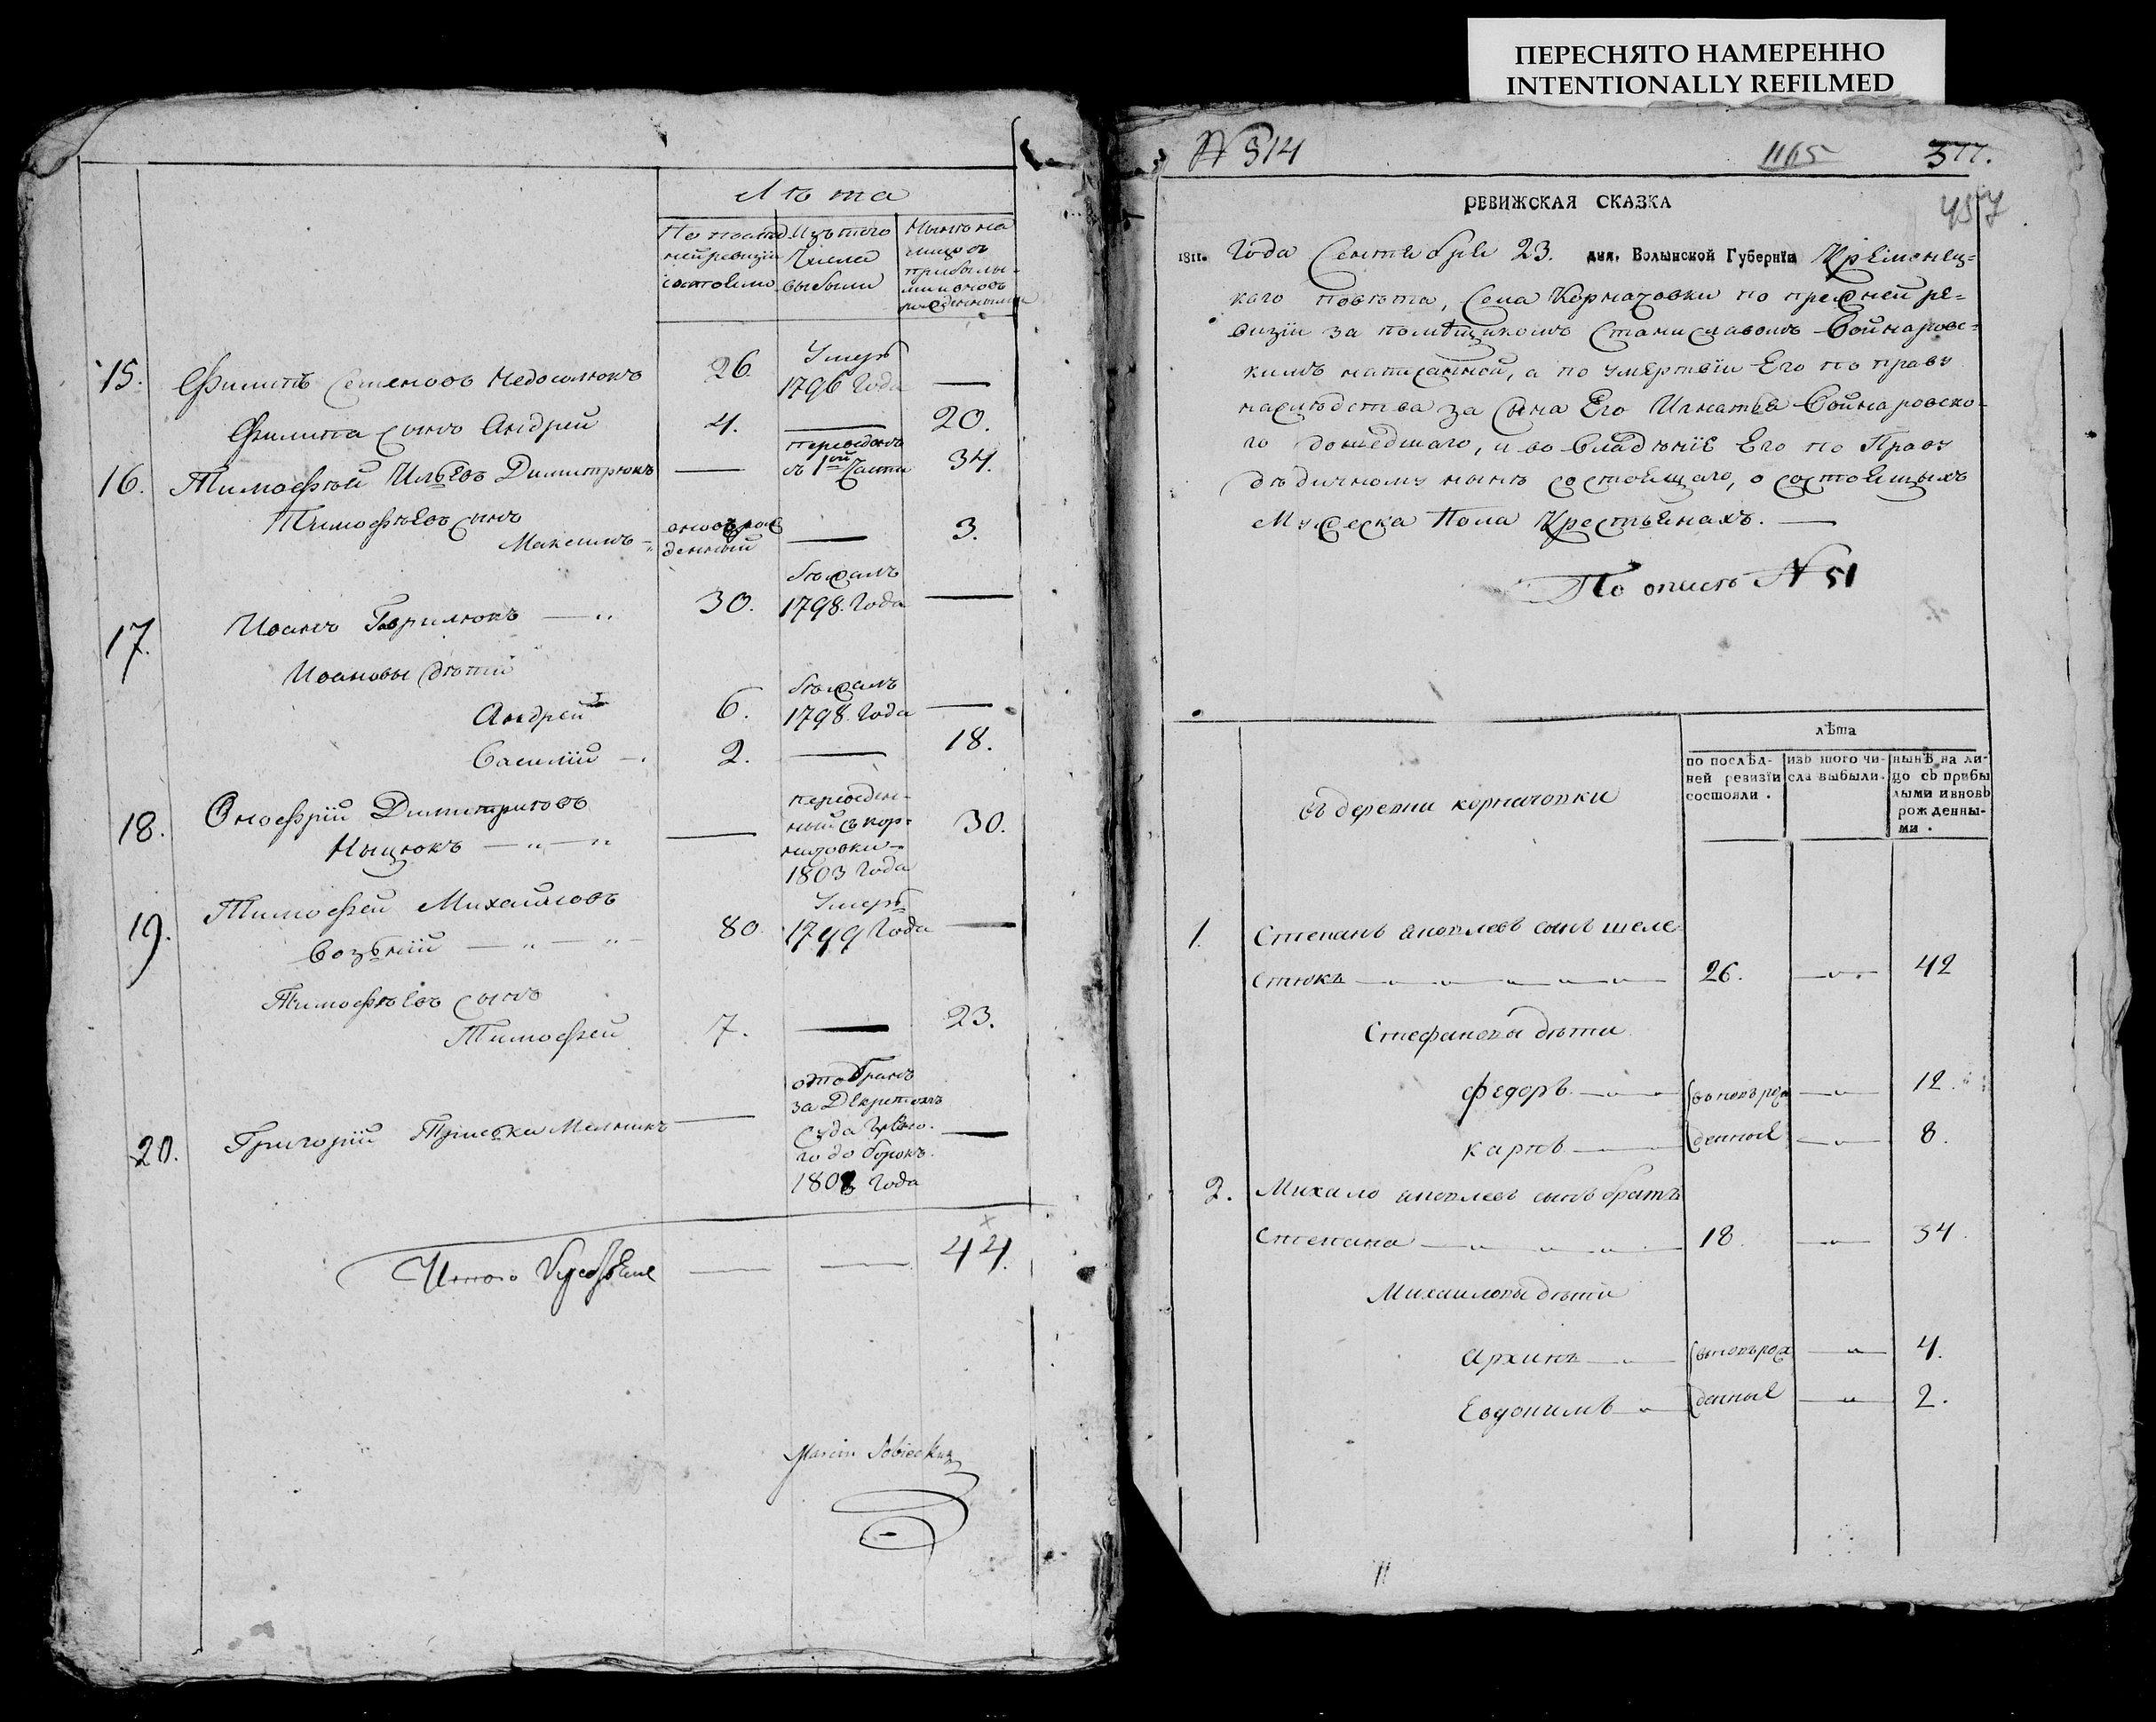 ПЕРЕСНЯТО НАМЕРЕННО
INTENTIONALLY REFILMED
Лѣта
По послѣд
ней ревизіи
состояло
Изъ того
числа
выбыли
Нынѣ на
лицо съ
прибылы-
ми и вновь
рожденными
15. Филипъ Семеновъ Недосолюкъ 26. Умеръ 1796 Года —
Филипа сынъ Андрей 4. — 20.
16. Тимофѣй Ильевъ Димитрюкъ — переведенъ съ 1ой части 34.
Тимофѣевъ сынъ
Максимъ вновърож денный — 3.
17. Иванъ Гаврилюкъ — 30. бѣжалъ 1798. Года —
Ивановы дѣти
Андрей 6. бѣжалъ 1798. Года —
Василій — 2. — 18.
18. Онофрій Димитриговъ
Ныцюкъ — переведен- ный с кор- начовки 1803 Года 30.
19. Тимофей Михайловъ
Возьній — 80. Умеръ 1799 Года —
Тимофѣевъ сынъ
Тимофей 7. — 23.
20. Григорій Мельникъ — отобранъ за Декретомъ Суда Года —
Итого 44.
Marcin Sobiecki
№ 314 1165 377.
457
РЕВИЖСКАЯ СКАЗКА
1811. Года Сентября 23. дня, Волынской Губерніи Кременец-
каго повѣта, Села Корначовки по прежней ре-
визіи за помѣщикомъ Станиславомъ Войнаровс-
кимъ написанной, а по умертвіи Его по праву
наслѣдства за сына Его Игнатія Войнаровско-
го дошедшаго, и во владѣніе Его по Праву
дѣдичному нынѣ состоящаго, о состоящихъ
Мужеска Пола Крестьянахъ. —
По описѣ № 51
лѣта
по послѣд-
ней ревизіи
состояли.
изъ того чи-
сла выбыли.
нынѣ на ли-
цо съ прибы
лыми и вновь
рожденны-
ми.
въ деревни корначовки
1. Степанъ яковлевъ сынъ шеле
стюкъ — 26. — 42
Стефановы дѣти
федоръ — вновь рож — 12.
карпъ — денные — 8.
2. Михало яковлевъ сынъ братъ
Степана — 18. — 34.
Михайловы дѣти
архипъ — вновь рож — 4.
Евдокимъ — денные — 2.